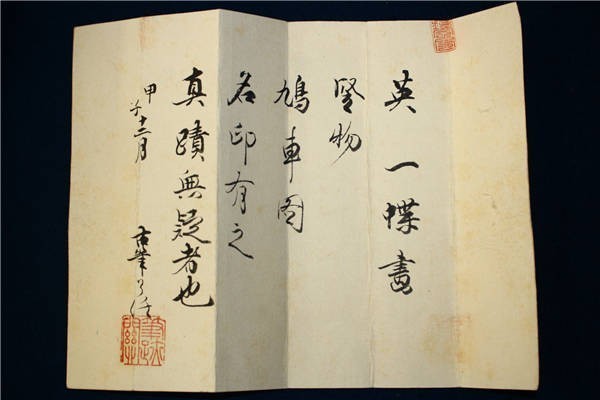 英一蝶畫
竪物
鳩車図
名印有之
真蹟無疑者也
甲子十二月
古筆了